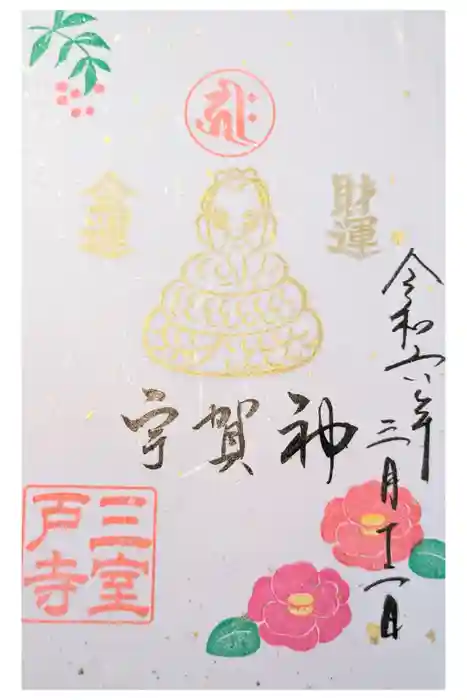 金運
財運
令和六年
三月十一日
宇賀神
三室
戸寺